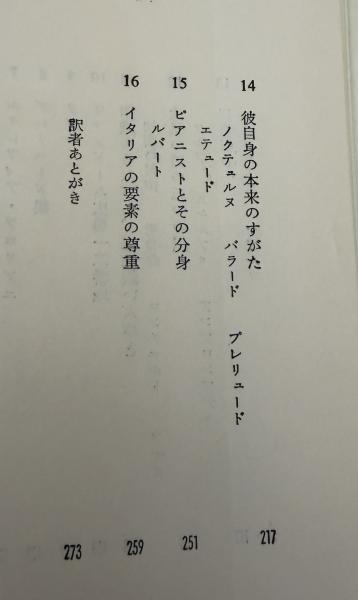 14 彼自身の本来のすがた 217
ノクテュルヌ バラード プレリュード
エテュード
15 ピアニストとその分身 251
ルバート
16 イタリアの要素の尊重 259
訳者あとがき 273